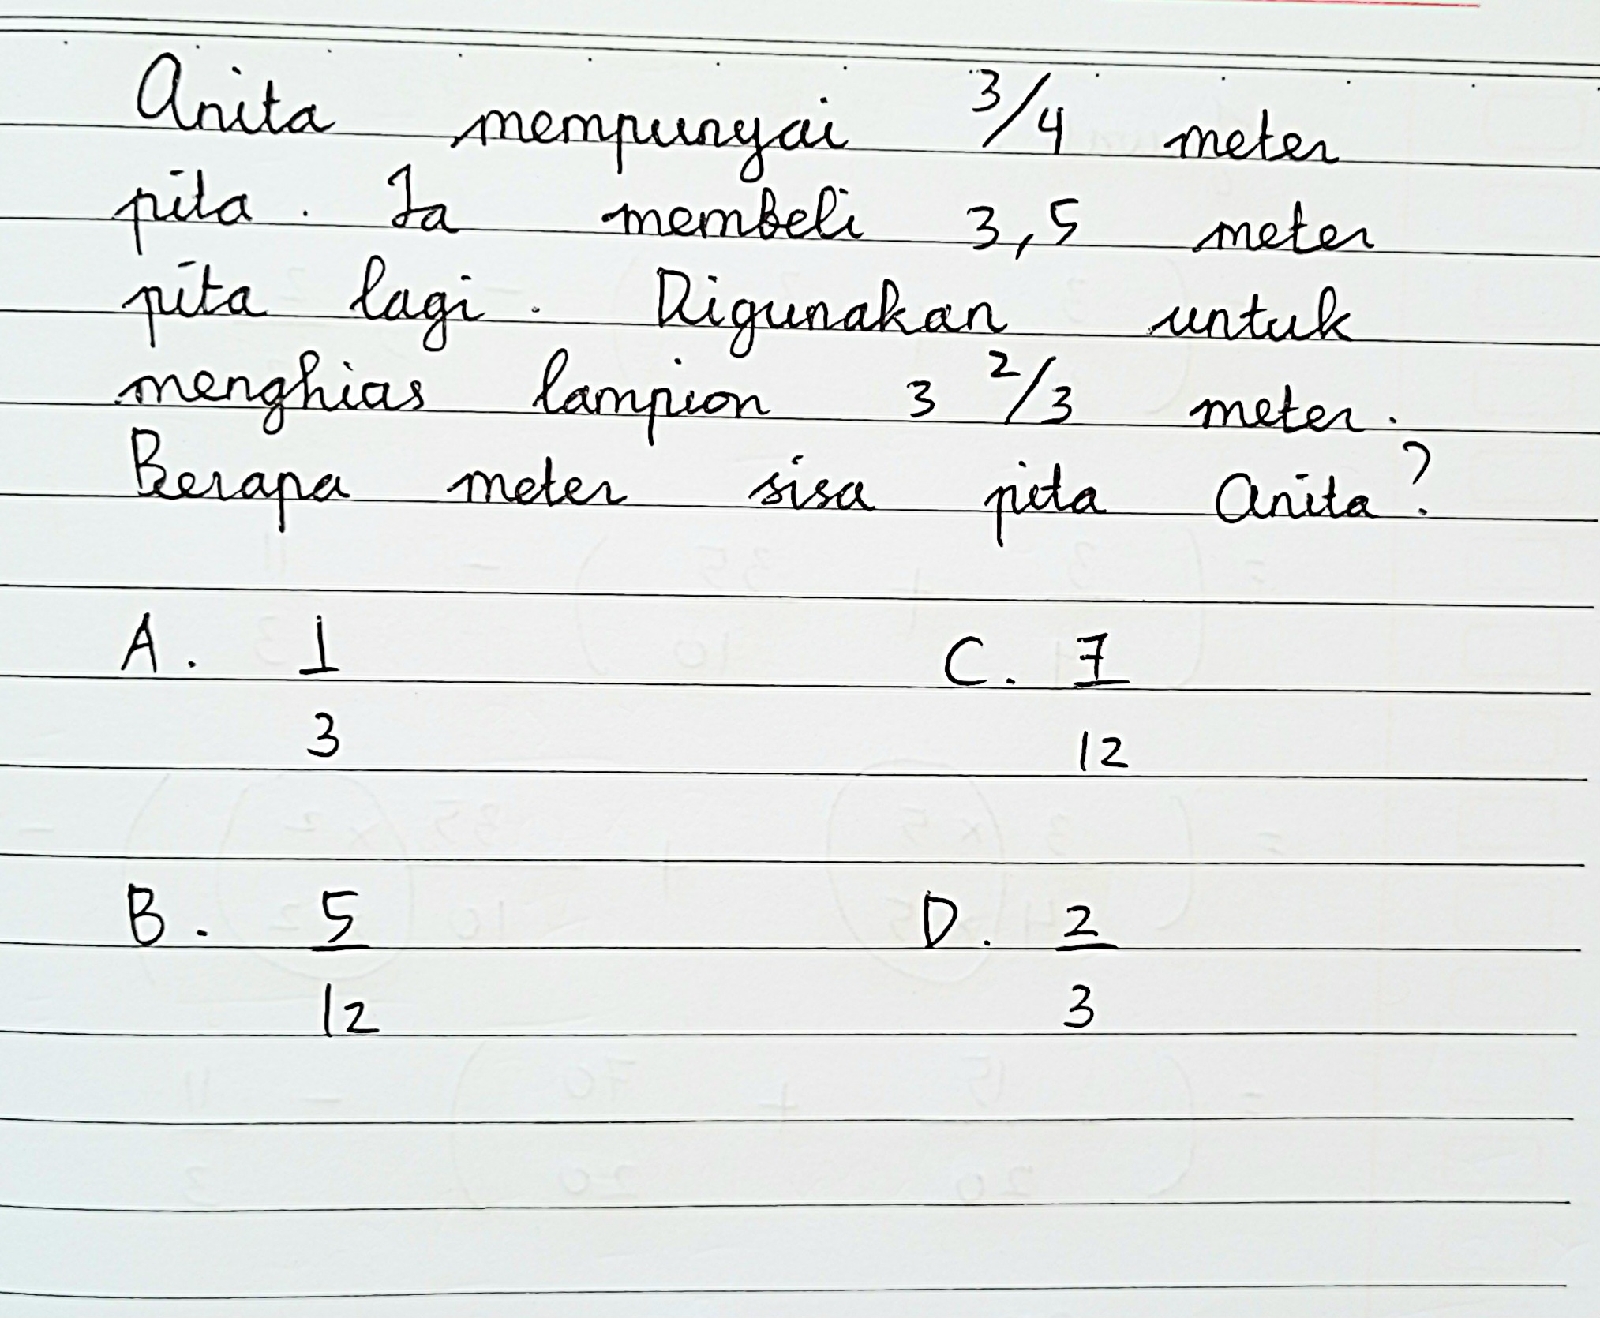 Anita mempunyai 3/4 meter
pita. Ia membeli 3,5 meter
pita lagi. Digunakan untuk
menghias lampion 3 2/3 meter.
Berapa meter sisa pita Anita?
A. 1/3 C. 7/12
B. 5/12 D. 2/3